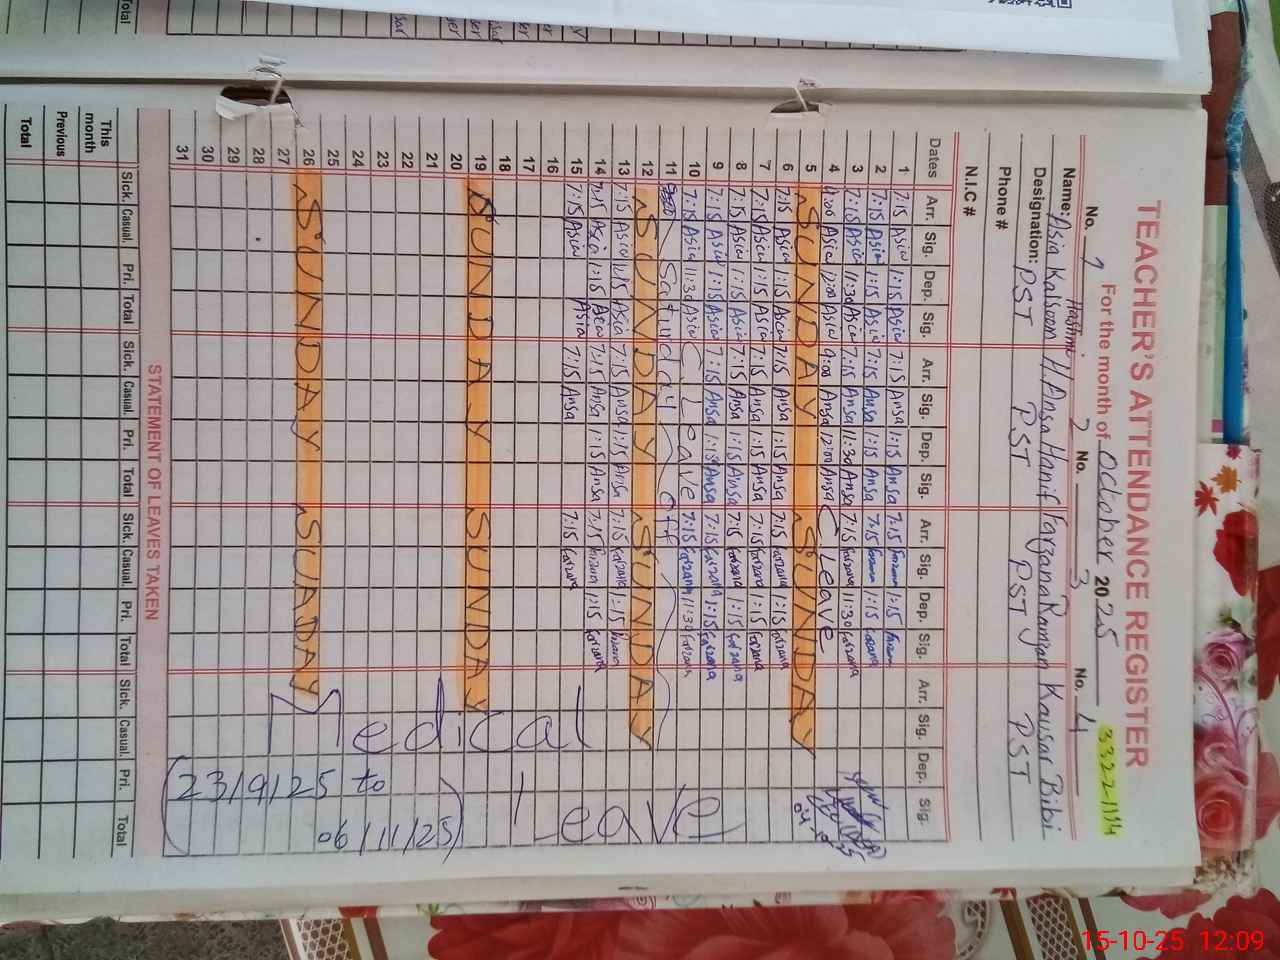 TEACHER'S ATTENDANCE REGISTER
33221114
For the month of October 2025
No. 1 2 No. 3 No. 4
Name: Asia Kalsoom Hashmi H.Ansa Hanif Farzana Ramzan Kausar Bibi
Designation: PST PST PST PST
Phone #
N.I.C #
Dates Arr. Sig. Dep. Sig. Arr. Sig. Dep. Sig. Arr. Sig. Dep. Sig. Arr. Sig. Dep. Sig.
1 7:15 Asia 1:15 Asia 7:15 Ansa 1:15 Ansa 7:15 Farzana 1:15 Farzana
2 7:15 Asia 1:15 Asia 7:15 Ansa 1:15 Ansa 7:15 Farzana 1:15 Farzana
3 7:15 Asia 11:30 Asia 7:15 Ansa 11:30 Ansa 7:15 Farzana 11:30 Farzana
4 Asia 12:00 Asia 9:00 Ansa 12:00 Ansa C Leave
5 SUNDAY SUNDAY
6 7:15 Asia 1:15 Asia 7:15 Ansa 1:15 Ansa 7:15 Farzana 1:15 Farzana
7 7:15 Asia 1:15 Asia 7:15 Ansa 1:15 Ansa 7:15 Farzana 1:15 Farzana
8 7:15 Asia 1:15 Asia 7:15 Ansa 1:15 Ansa 7:15 Farzana 1:15 Farzana
9 7:15 Asia 1:15 Asia 7:15 Ansa 1:15 Ansa 7:15 Farzana 1:15 Farzana
10 7:15 Asia 11:30 Asia C. Leave 7:15 Farzana 11:30 Farzana
11 Saturday Off
12 SUNDAY SUNDAY
13 7:15 Asia 1:15 Asia 7:15 Ansa 1:15 Ansa 7:15 Farzana 1:15 Farzana
14 7:15 Asia 1:15 Asia 7:15 Ansa 1:15 Ansa 7:15 Farzana 1:15 Farzana
15 7:15 Asia Asia 7:15 Ansa 7:15 Farzana
16
17
18
19 SUNDAY SUNDAY
20
21
22
23
24
25
26 SUNDAY SUNDAY
27
28
29
30
31
Medical Leave
(23/9/25 to
06/11/25)
STATEMENT OF LEAVES TAKEN
Sick. Casual. Pri. Total Sick. Casual. Pri. Total Sick. Casual. Pri. Total Sick. Casual. Pri. Total
This month
Previous
Total
15-10-25 12:09